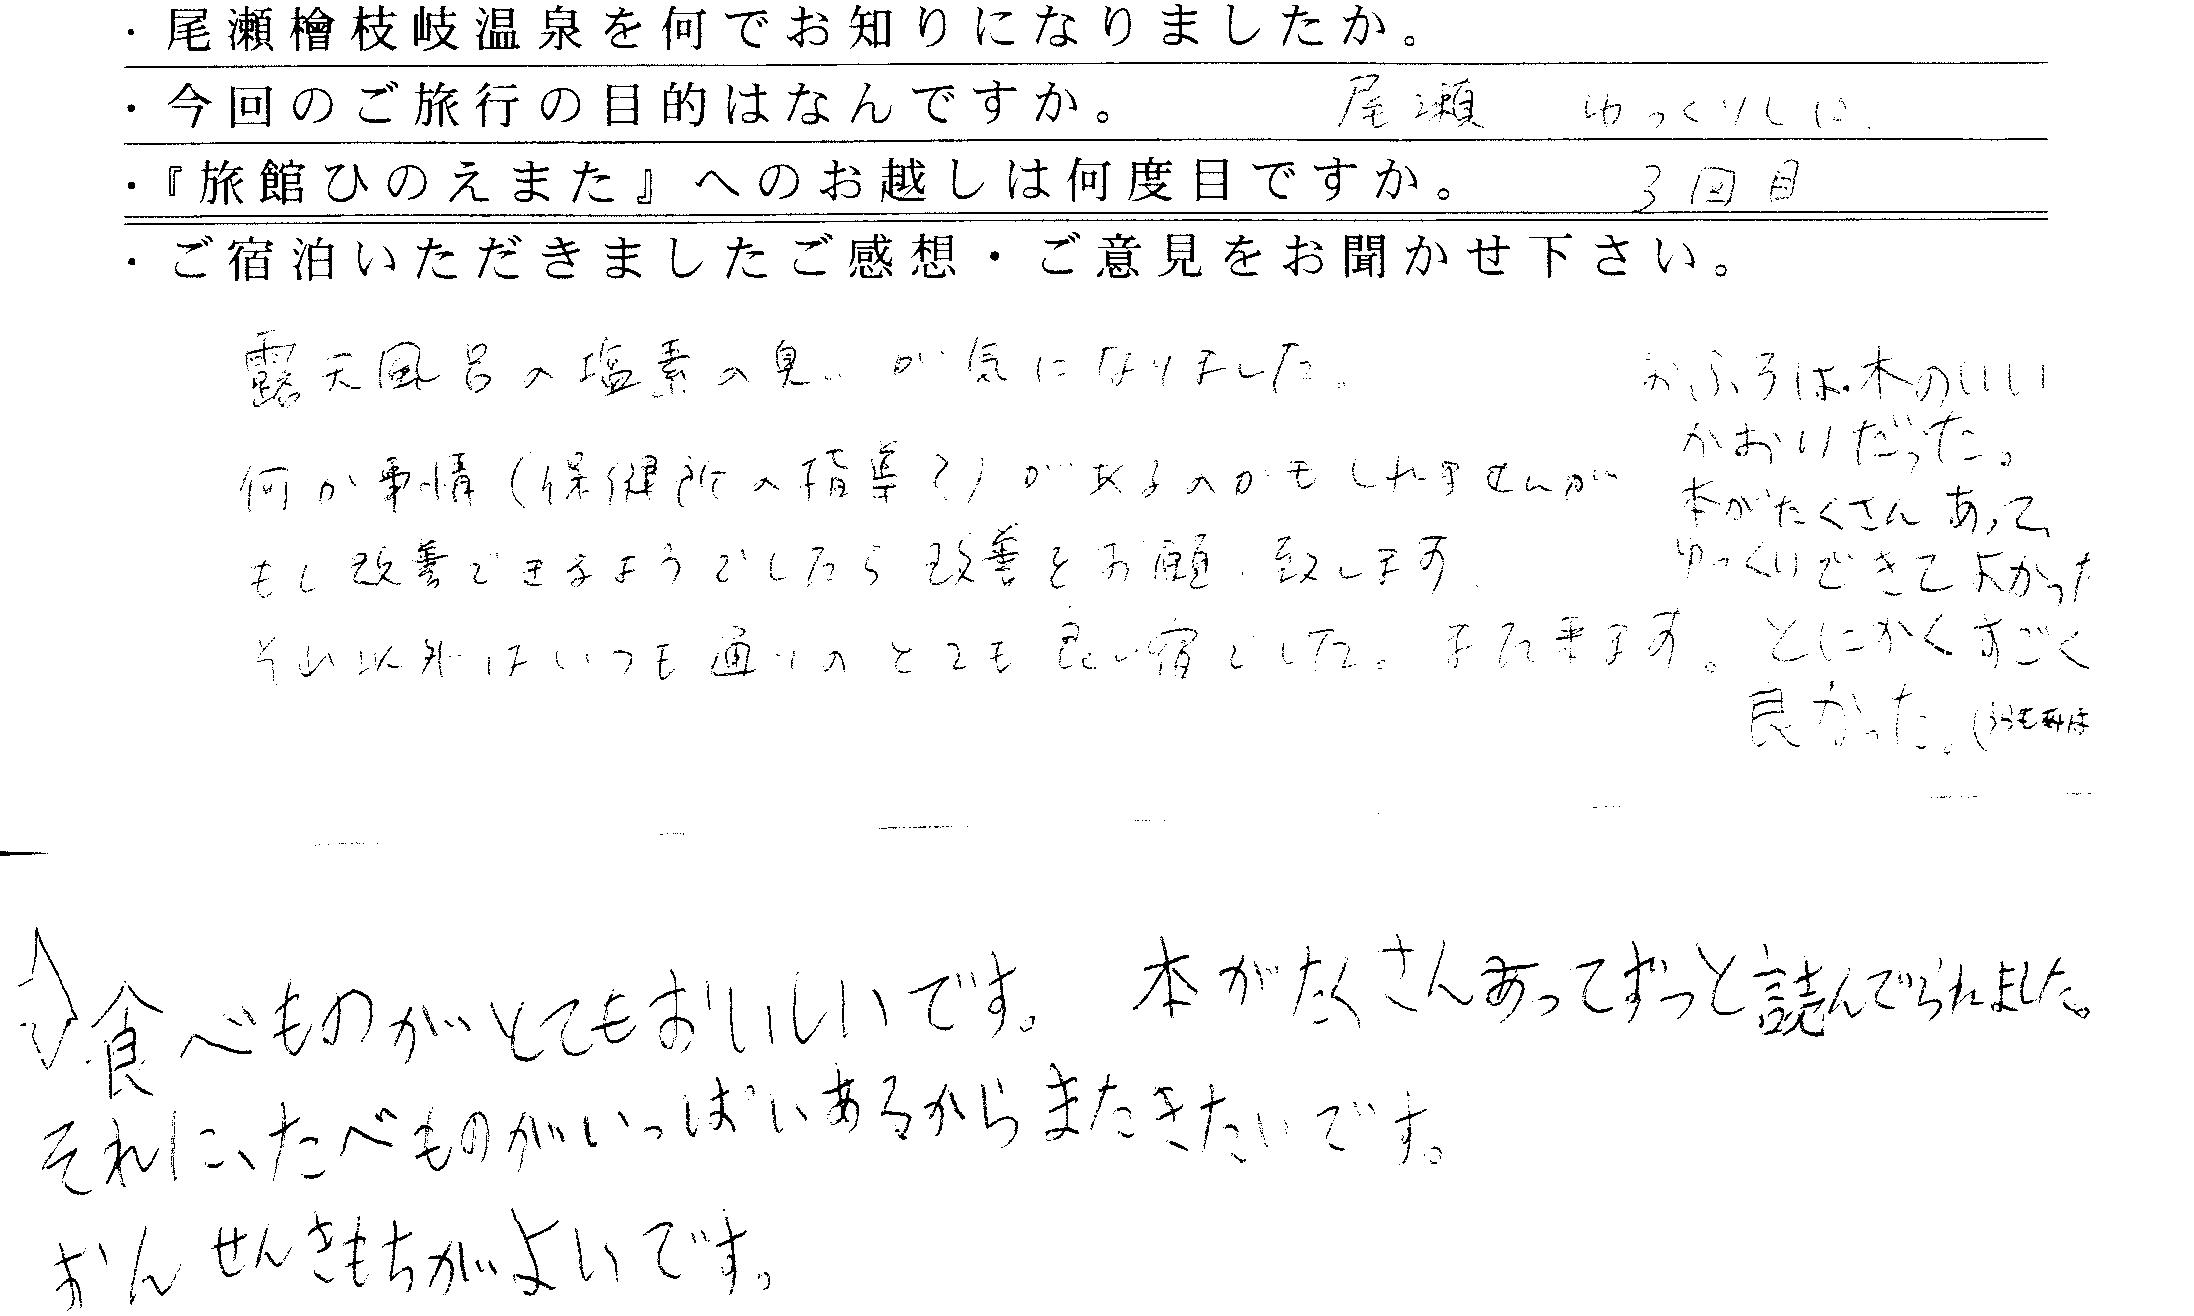 ・尾瀬檜枝岐温泉を何でお知りになりましたか。
・今回のご旅行の目的はなんですか。 尾瀬 ゆっくりしに.
・『旅館ひのえまた』へのお越しは何度目ですか。 3回目
・ご宿泊いただきましたご感想・ご意見をお聞かせ下さい。
露天風呂の塩素の臭いが気になりました。
何か事情(保健所の指導?)があるのかもしれませんが
もし改善できるようでしたら改善をお願い致します.
それ以外はいつも通りのとても良い宿でした。また来ます。
おふろは木のいい
かおりだった。
本がたくさんあって、
ゆっくりできてよかった
とにかくすごく
良かった。
食べものがとてもおいしいです。 本がたくさんあってずっと読んでられました。
それに、たべものがいっぱいあるからまたきたいです。
おんせんきもちがよいです。